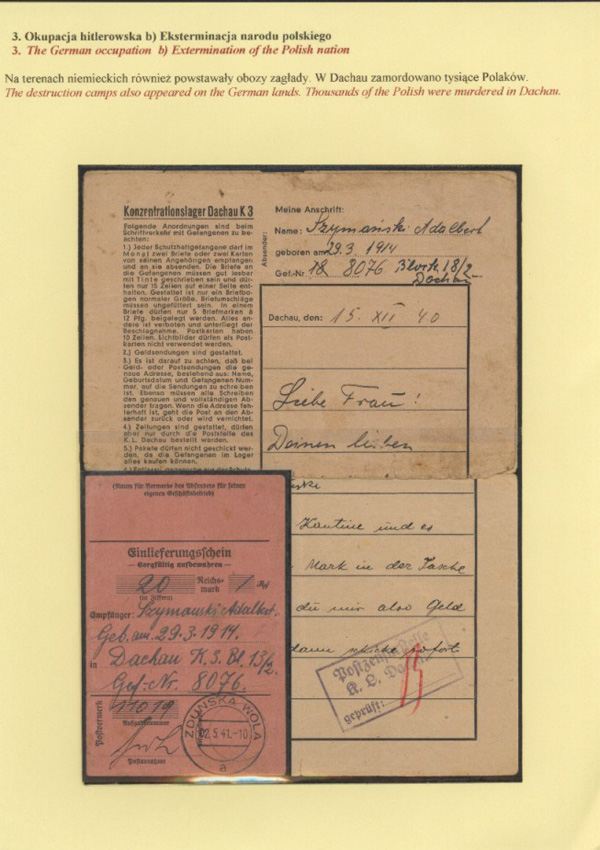 3. Okupacja hitlerowska b) Eksterminacja narodu polskiego
3. The German occupation b) Extermination of the Polish nation
Na terenach niemieckich również powstawały obozy zagłady. W Dachau zamordowano tysiące Polaków.
The destruction camps also appeared on the German lands. Thousands of the Polish were murdered in Dachau.
Konzentrationslager Dachau K 3
Folgende Anordnungen sind beim
Schriftverkehr mit Gefangenen zu be-
achten:
1.) Jeder Schutzhaftgefangene darf im
Monat zwei Briefe oder zwei Karten
von seinen Angehörigen empfangen
und an sie absenden. Die Briefe an
die Gefangenen müssen gut lesbar
mit Tinte geschrieben sein und dür-
fen nur 15 Zeilen auf einer Seite ent-
halten. Gestattet ist nur ein Briefbo-
gen normaler Größe. Briefumschläge
müssen ungefüttert sein. In einem
Briefe dürfen nur 5 Briefmarken à
12 Pfg. beigelegt werden. Alles an-
dere ist verboten und unterliegt der
Beschlagnahme. Postkarten haben
10 Zeilen. Lichtbilder dürfen als Post-
karten nicht verwendet werden.
2.) Geldsendungen sind gestattet.
3.) Es ist darauf zu achten, daß bei
Geld- oder Postsendungen die ge-
naue Adresse, bestehend aus: Name,
Geburtsdatum und Gefangenen Num-
mer, auf die Sendungen zu schreiben
ist. Ebenso müssen alle Schreiben
den genauen und vollständigen Ab-
sender tragen. Wenn die Adresse feh-
lerhaft ist, geht die Post an den Ab-
sender zurück oder wird vernichtet.
4.) Zeitungen sind gestattet, dürfen
aber nur durch die Poststelle des
K. L. Dachau bestellt werden.
5.) Pakete dürfen nicht geschickt wer-
den, da die Gefangenen im Lager
alles kaufen können.
Absender:
Meine Anschrift:
Name: Szymański Adalbert
geboren am 29.3.1914
Gef.-Nr. 8076 Block 18/2
Dachau
Dachau, den: 15. XII 40
Liebe Frau!
Deinen lieben
Kantine und es
Mark in der Tasche
du mir also Geld
dann schicke sofort
Postzensurstelle
K. L. Dachau
geprüft:
(Raum für Vermerke des Absenders für seinen
eigenen Geschäftsbetrieb)
Einlieferungsschein
— Sorgfältig aufbewahren —
20 Reichs-
mark
(in Ziffern)
Empfänger: Szymanski Adalbert.
Geb. am 29.3.1914.
in Dachau K. 3. Bl. 13/2.
Gef.-Nr. 8076.
Postvermerk
Aufgabenummer
Postannahme
ZDUNSKA WOLA
02.5.41.-10
a